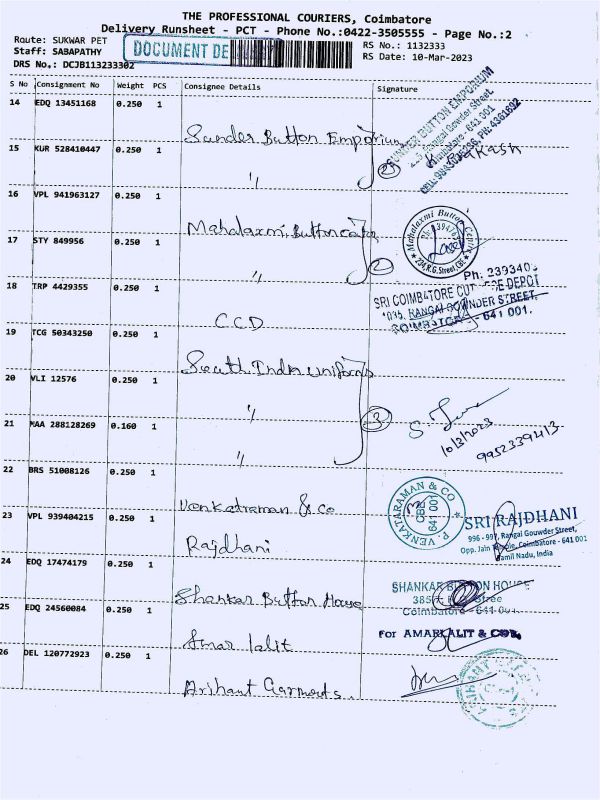 THE PROFESSIONAL COURIERS, Coimbatore
Delivery Runsheet - PCT - Phone No.:0422-3505555 - Page No.:2
Route: SUKWAR PET
DOCUMENT DE
RS No.: 1132333
Staff: SABAPATHY
RS Date: 10-Mar-2023
DRS No.: DCJB113233302
S No Consignment No Weight PCS Consignee Details Signature
14 EDQ 13451168 0.250 1
Sunder Button Emporium
SUNDER BUTTON EMPORIUM
Gowder Street
641 001
15 KUR 528410447 0.250 1
"
2
16 VPL 941963127 0.250 1
Mahalaxmi Button center
Mahalaxmi Button Centre
17 STY 849956 0.250 1
"
2
18 TRP 4429355 0.250 1
CCD
SRI COIMBATORE CUT DEPOT
RANGAI GOWNDER STREET,
COIMBATORE - 641 001.
19 TCG 50343250 0.250 1
South India uniforms
20 VLI 12576 0.250 1
"
3
21 MAA 288128269 0.160 1
"
10/3/2023
9952339413
22 BRS 51008126 0.250 1
Venkatraman & Co
P. VENKATARAMAN & CO
CBE
641 001
23 VPL 939404215 0.250 1
Rajdhani
SRI RAJDHANI
996 - 997, Rangai Gouwder Street,
Opp. Jain Temple, Coimbatore - 641 001
Tamil Nadu, India
24 EDQ 17474179 0.250 1
Shankar Button House
SHANKAR BUTTON HOUSE
Coimbatore - 641 001
25 EDQ 24560084 0.250 1
Amar lalit
For AMAR LALIT & CO
26 DEL 120772923 0.250 1
Arihant Garments